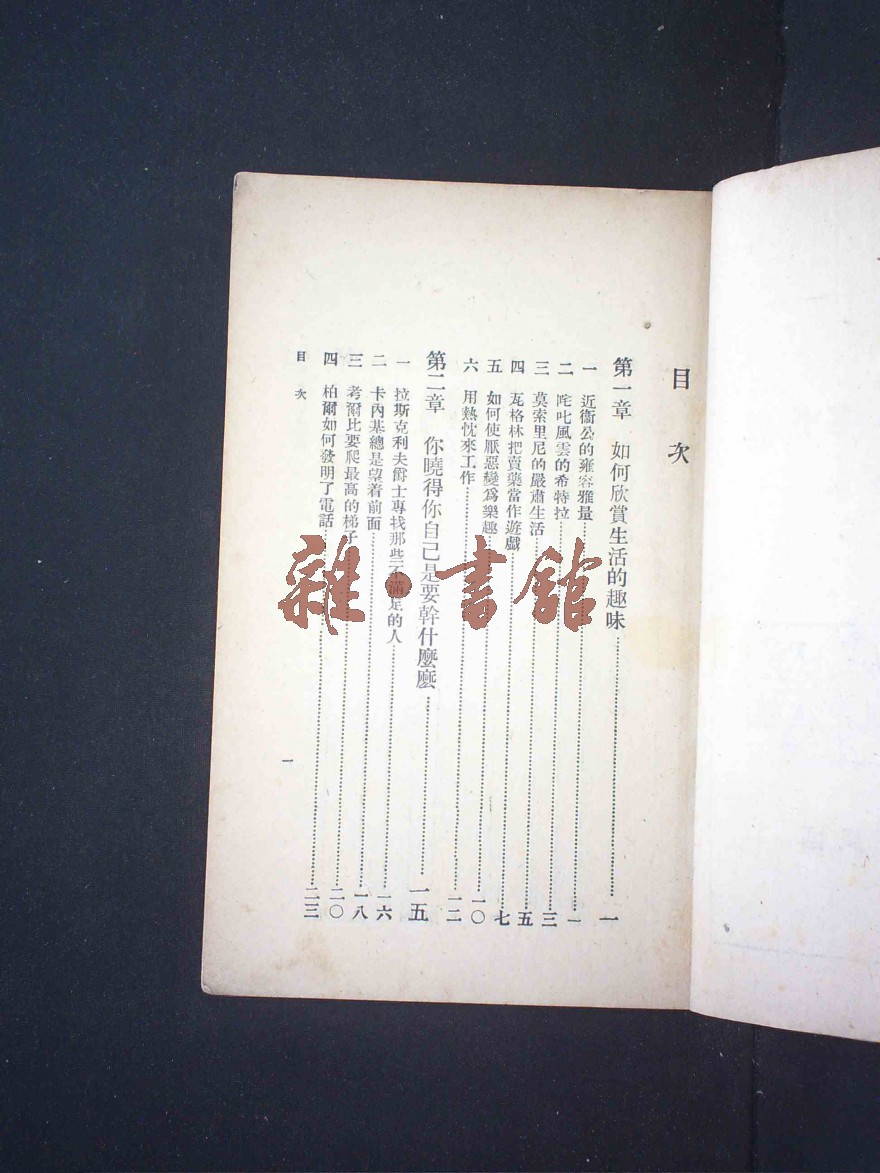 目次
第一章 如何欣賞生活的趣味 一
一 近衞公的雍容雅量 一
二 咤叱風雲的希特拉 三
三 莫索里尼的嚴肅生活 五
四 瓦格林把賣藥當作遊戲 七
五 如何使厭惡變爲樂趣 一〇
六 用熱忱來工作 一二
第二章 你曉得你自己是要幹什麼麽 一五
一 拉斯克利夫爵士專找那些不滿足的人 一六
二 卡內基總是望着前面 一八
三 考爾比要爬最高的梯子 二〇
四 柏爾如何發明了電話 二三
目次
一
雜·書館